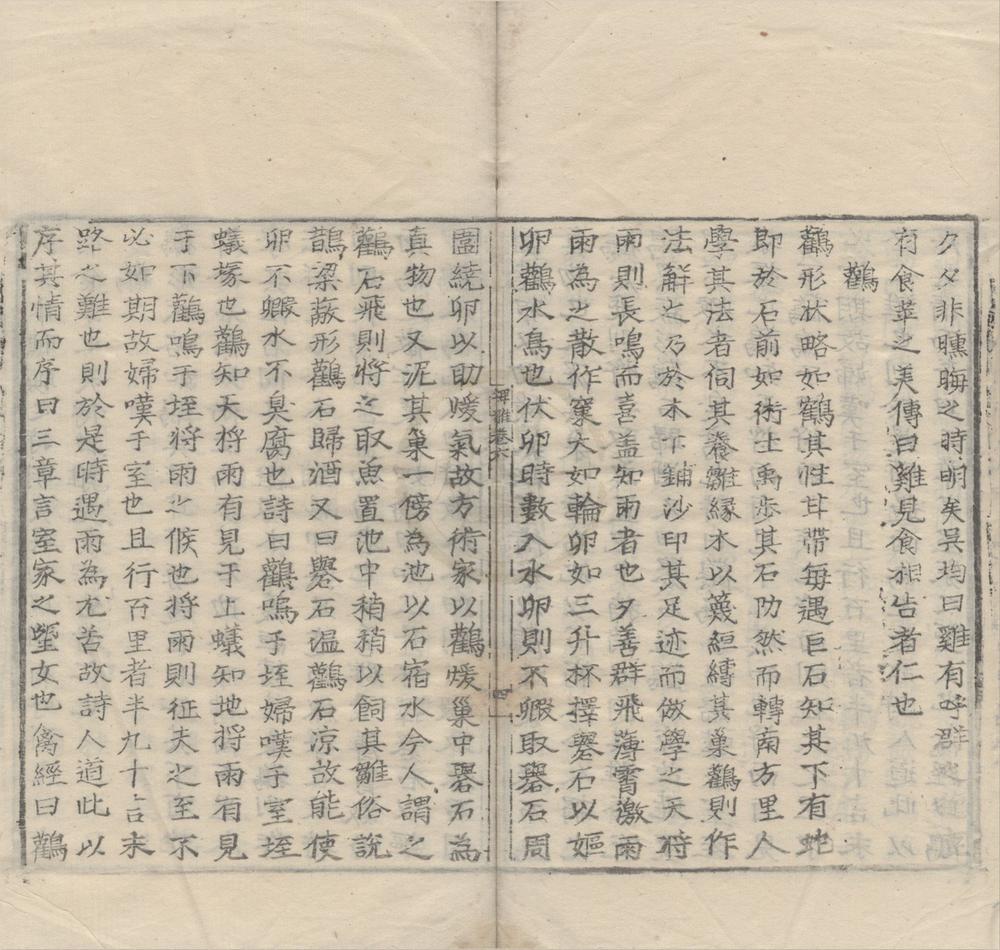 夕夕非曛晦之時明矣吴均曰雞有呼群
有食苹之美傳曰雞見食相告者仁也
鸛
鸛形状略如鶴其性甘帶每遇巨石知其下有蛇
即於石前如術士禹歩其石阞然而轉南方里人
學其法者伺其養雛縁木以篾絙縛其巢鸛則作
法解之乃於木下鋪沙印其足迹而倣學之天將
雨則長鳴而喜盖知雨者也又善群飛薄霄激雨
雨為之散作窠大如輪卵如三升杯擇礜石以嫗
卵鸛水鳥也伏卵時數入水卵則不毈取礜石周
圍繞卵以助煖氣故方術家以鸛煖巢中礜石為
真物也又泥其巢一傍為池以石宿水今人謂之
鸛石飛則將之取魚置池中稍稍以飼其雛俗說
鵲梁蔽形鸛石歸酒又曰礜石温鸛石凉故能使
卵不毈水不臭腐也詩曰鸛鳴于垤婦嘆于室垤
蟻塚也鸛知天将雨有見于上蟻知地将雨有見
于下鸛鳴于垤将雨之候也将雨則征夫之至不
必如期故婦嘆于室也且行百里者半九十言末
路之難也則於是時遇雨為尤苦故詩人道此以
序其情而序曰三章言室家之望女也禽經曰鸛
埤雅卷六
四